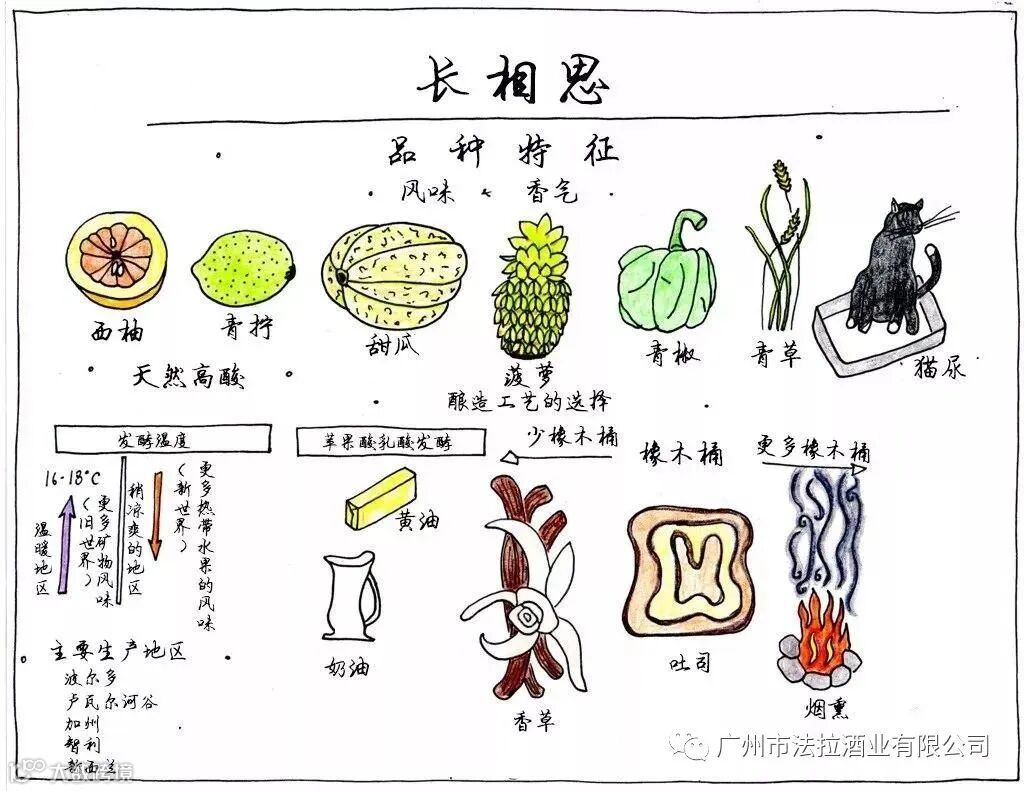 长相思
品种特征
风味 & 香气
西柚
青拧
甜瓜
菠萝
青椒
青草
猫尿
天然高酸
酿造工艺的选择
发酵温度
16-18°C
温暖地区
更多矿物风味
(旧世界)
稍凉爽的地区
更多热带水果的风味
(新世界)
苹果酸乳酸发酵
黄油
奶油
少橡木桶
橡木桶
更多橡木桶
香草
吐司
烟熏
主要生产地区
波尔多
卢瓦尔河谷
加州
智利
新西兰
广州市法拉酒业有限公司